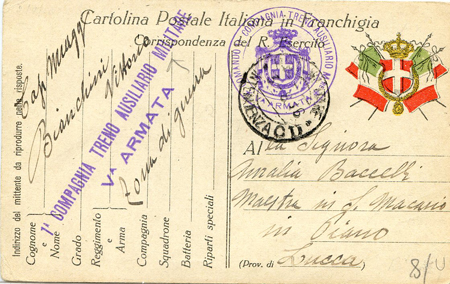 Cartolina Postale Italiana in Franchigia
Corrispondenza del R. Esercito
COMANDO 1ª COMPAGNIA TRENO AUSILIARIO MILITARE
Vª ARMATA
Alla Signora
Amalia Baccelli
Maestra in S. Macario
in Piano
(Prov. di Lucca)
Indirizzo del mittente da riprodurre nelle risposte.
Cognome e Nome
Bianchini Vittorio
Grado
Cap. Magg.
Reggimento e Arma
Compagnia
Zona di guerra
Squadrone
Batteria
Riparti speciali
1ª COMPAGNIA TRENO AUSILIARIO MILITARE
Vª ARMATA